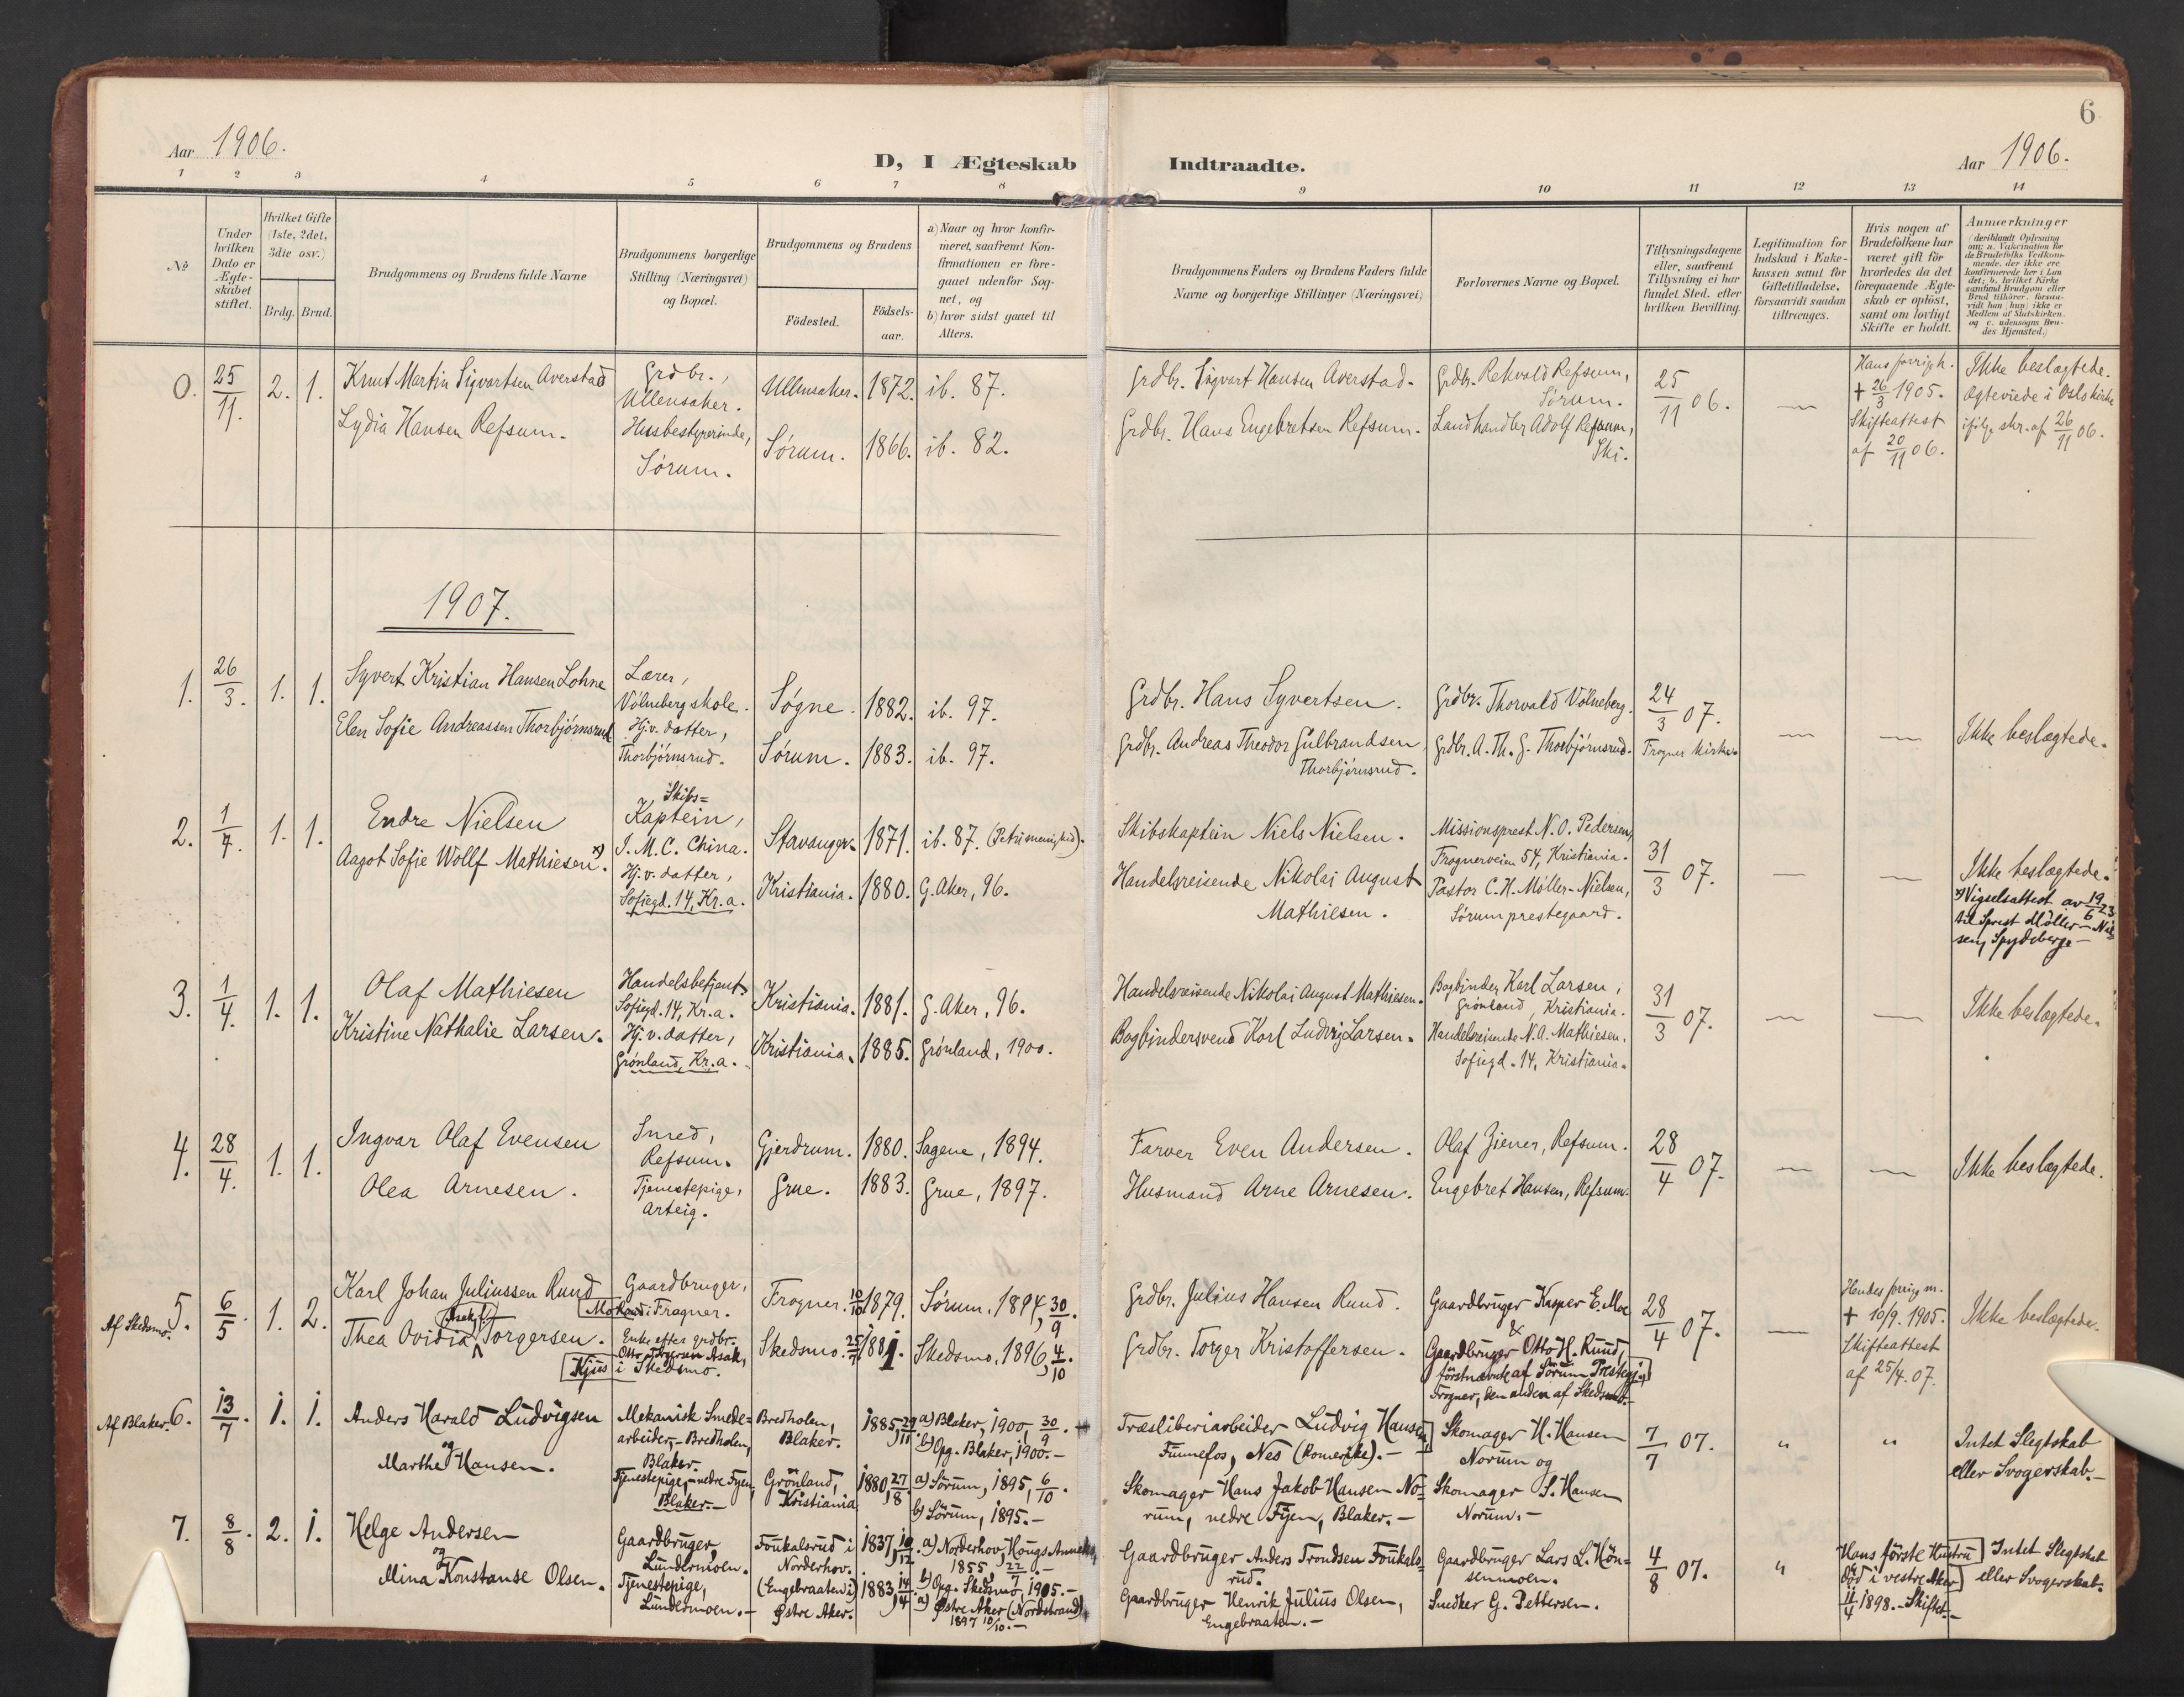 6
Aar 1906.
D, I Ægteskab Indtraadte.
Aar 1906.
1 2 3 4 5 6 7 8 9 10 11 12 13 14
No
Under hvilken Dato er Ægteskabet stiftet.
Hvilket Gifte (1ste, 2det, 3die osv.)
Brdg. Brud.
Brudgommens og Brudens fulde Navne
Brudgommens borgerlige Stilling (Næringsvei) og Bopæl.
Brudgommens og Brudens
Födested.
Födsels-aar.
a) Naar og hvor konfirmeret, saafremt Konfirmationen er foregaaet udenfor Sognet, og
b) hvor sidst gaaet til Alters.
Brudgommens Faders og Brudens Faders fulde Navne og borgerlige Stillinger (Næringsvei)
Forlovernes Navne og Bopæl.
Tillysningsdagene eller, saafremt Tillysning ei har fundet Sted, efter hvilken Bevilling.
Legitimation for Indskud i Enkekassen samt for Giftetilladelse, forsaavidt saadan tiltrænges.
Hvis nogen af Brudefolkene har været gift för hvorledes da det foregaaende Ægteskab er oplöst, samt om lovligt Skifte er holdt.
Anmærkninger
(deriblandt Oplysning om: a. Vakcination for de Brudefolks Vedkommende, der ikke ere konfirmerede her i Landet; b. hvilket Kirkesamfund Brudgom eller Brud tilhörer, forsaavidt han (hun) ikke er Medlem af Statskirken, og c. udensogns Brudes Hjemsted.)
0. 25/11. 2. 1.
Knut Martin Sigvartsen Averstad
Lydia Hansen Refsum.
Grdbr.,
Ullensaker.
Husbestyrerinde,
Sørum.
Ullensaker. 1872. ib. 87.
Sørum. 1866. ib. 82.
Grdbr. Sigvart Hansen Averstad.
Grdbr. Hans Engebretsen Refsum.
Grdbr. Rekvald Refsum,
Sørum.
Landhandler Adolf Refsum,
Ski.
25/11 06.
—
Hans forrige h.
† 26/3 1905.
Skifteattest
af 20/11 06.
Ikke beslægtede.
Ægteviede i Oslo kirke
ifølge skr. af 26/11 06.
1907.
1. 26/3. 1. 1.
Syvert Kristian Hansen Lohne
Elen Sofie Andreassen Thorbjørnsrud
Lærer,
Vølneberg skole.
Hj.v. datter,
Thorbjørnsrud.
Søgne. 1882. ib. 97.
Sørum. 1883. ib. 97.
Grdbr. Hans Syvertsen.
Grdbr. Andreas Theodor Gulbrandsen
Thorbjørnsrud.
Grdbr. Thorvald Vølneberg.
Grdbr. A. Th. G. Thorbjørnsrud.
24/3 07.
Frogner Kirke.
— —
Ikke beslægtede.
2. 1/4. 1. 1.
Endre Nielsen
Aagot Sofie Wollf Mathiesen x).
Skibs=
Kaptein,
I. M. C. China.
Hj.v. datter,
Sofiegd. 14, Kr.a.
Stavanger. 1871. ib. 87. (Petrimenighed).
Kristiania. 1880. G. Aker, 96.
Skibskaptein Niels Nielsen.
Handelsreisende Nikolai August
Mathiesen.
Missionsprest N. O. Pedersen,
Frognerveien 54, Kristiania.
Pastor C. H. Møller-Nielsen,
Sørum prestegaard.
31/3 07.
— —
Ikke beslægtede.
x) Vigselsattest av 19/6 23
til Sprest Möller-Niel
sen, Spydeberg.—
3. 1/4. 1. 1.
Olaf Mathiesen
Kristine Nathalie Larsen.
Handelsbetjent,
Sofiegd. 14, Kr.a.
Hj.v. datter,
Grønland, Kr.a.
Kristiania. 1881. G. Aker, 96.
Kristiania. 1885. Grønland, 1900.
Handelsreisende Nikolai August Mathiesen.
Bogbindersvend Karl Ludvig Larsen.
Bogbinder Karl Larsen,
Grønland, Kristiania.
Handelsreisende N. A. Mathiesen,
Sofiegd. 14, Kristiania.
31/3 07.
— —
Ikke beslægtede.
4. 28/4. 1. 1.
Ingvar Olaf Evensen
Olea Arnesen.
Smed,
Refsum.
Tjenestepige,
Arteig.
Gjerdrum. 1880. Sagene, 1894.
Grue. 1883. Grue, 1897.
Farver Even Andersen.
Husmand Arne Arnesen.
Olaf Ziener, Refsum.
Engebret Hansen, Refsum.
28/4 07.
— —
Ikke beslægtede.
Af Skedsmo. 5. 6/5. 1. 2.
Karl Johan Juliussen Rund
Asak,
Thea Ovidia Torgersen.
Gaardbruger,
Mo i Frogner.
Enke efter grdbr.
Otto Torgersen Asak,
Kjus i Skedsmo.
Frogner. 10/10 1879. Sørum. 1894, 30/9.
Skedsmo. 25/7 1881. Skedsmo. 1896, 4/10.
Grdbr. Julius Hansen Rund.
Grdbr. Torger Kristoffersen.
Gaardbruger Kasper E. Moe
&
Gaardbruger Otto H. Rund,
förstnævnte af Sørum Prestegj.,
Frogner, den anden af Skedsmo.—
28/4 07.
—
Hendes forrige m.
† 10/9. 1905.
Skifteattest
af 25/4. 07.
Ikke beslægtede.
Af Blaker. 6. 13/7. 1. 1.
Anders Harald Ludvigsen
og
Marthe Hansen.
Mekanisk Smede=
arbeider,- Bredholen,
Blaker.
Tjenestepige,- nedre Fyen,
Blaker.—
Bredholen,
Blaker.
Grönland,
Kristiania
1885, 29/11.
1880, 27/8
a) Blaker, 1900, 30/9.
b) Opg. Blaker, 1900.—
a) Sørum, 1895, 6/10.
b) Sørum, 1895.—
Træsliberiarbeider Ludvig Hansen
Funnefos, Nes (Romerike).—
Skomager Hans Jakob Hansen No=
rum, nedre Fyen, Blaker.—
Skomager H. Hansen
Norum og
Skomager S. Hansen
Norum.—
7/7 07.
" "
Intet Slegtskab
eller Svogerskab.—
7. 8/8. 2. 1.
Helge Andersen
og
Mina Konstanse Olsen.
Gaardbruger,
Lundermoen.
Tjenestepige,
Lundermoen.—
Foukalsrud i
Norderhov.
(Engebraaten i)
Østre Aker.
1837, 10/12.
1883, 14/4
a) Norderhov, Hougs Anneks,
1855, 22/7.—
b) Opg. Skedsmo, 1905.—
a) Østre Aker (Nordstrand)
1897 10/10.—
Gaardbruger Anders Trondsen Foukals=
rud.
Gaardbruger Henrik Julius Olsen,
Engebraaten.—
Gaardbruger Lars L. Hön=
senmoen.
Snedker G. Pettersen.
4/8 07.
"
Hans förste Hustru
död i vestre Aker
11/4 1898.- Skiftet.—
Intet Slegtskab
eller Svogerskab.